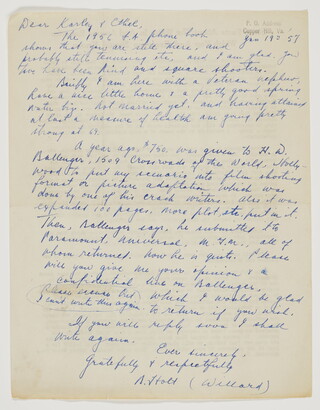 Dear Karley & Ethel,
P. O. Address
Copper Hill, Va.
Jan 19th 57
The 1956 L.A. phone book
shows that you are still there, and
probably still scenarioing etc, and I am glad. You
two have been kind and square shooters.
Briefly I am here with a veteran nephew,
have a nice little home & a pretty good spring
water biz. Not married yet, and having attained
at last a measure of health am going pretty
strong at 69.
A year ago, $750. was given to H. D.
Ballenger, 1509 Crossroads of the World, Holly-
wood to put my scenario into film shooting
format or picture adaptation, which was
done by one of his crash writers. Also it was
expanded 100 pages. More plot etc, put in it.
Then, Ballenger says, he submitted to
Paramount, Universal, M.G.M., all of
whom returned. Now he is quits. Please
will you give me your opinion & a
confidential line on Ballenger,
which I would be glad
to return if you wish.
I can't write this again.
If you will reply soon I shall
write again.
Ever sincerely,
Gratefully & respectfully
A. Holt (Willard)